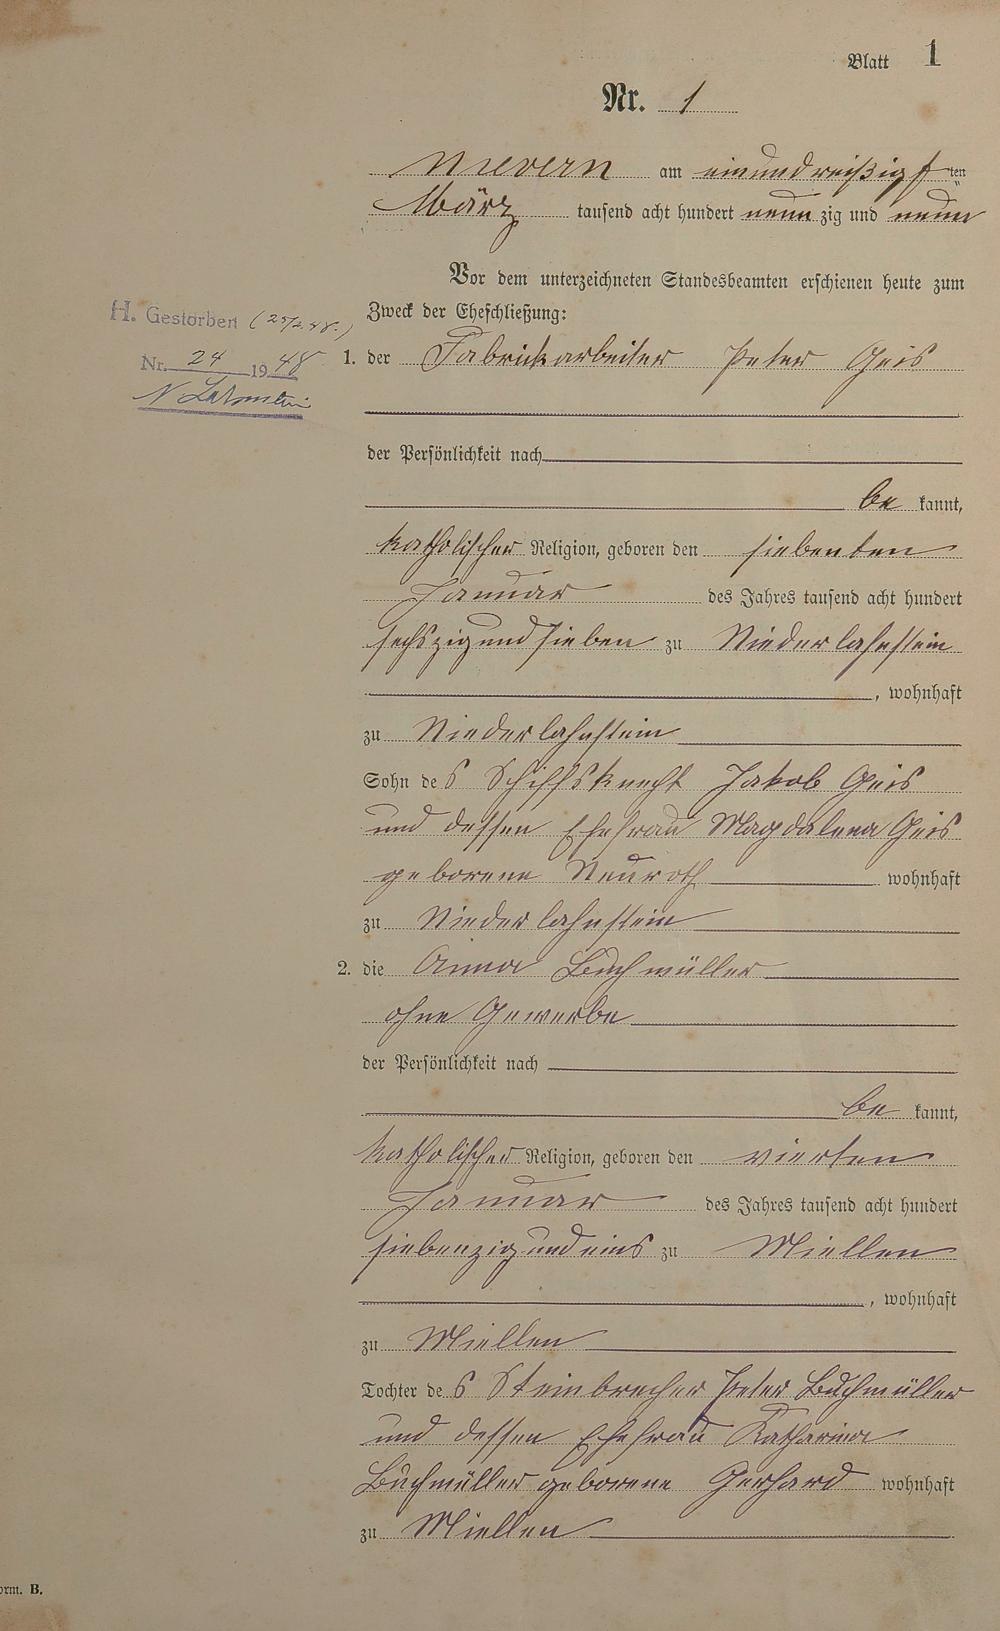 Blatt 1
Nr. 1
Nievern am einunddreißigsten
März tausend acht hundert neun zig und neun
Vor dem unterzeichneten Standesbeamten erschienen heute zum
Zweck der Eheschließung:
H. Gestorben (25/2.48.)
Nr. 24 1948
N Lahnstein
1. der Fabrickarbeiter Peter Geis
der Persönlichkeit nach
be kannt,
katholischer Religion, geboren den siebenten
Januar des Jahres tausend acht hundert
sechszig und sieben zu Niederlahnstein
, wohnhaft
zu Niederlahnstein
Sohn des Schiffsknecht Jakob Geis
und dessen Ehefrau Magdalena Geis
geborene Neuroth wohnhaft
zu Niederlahnstein
2. die Anna Buchmüller
ohne Gewerbe
der Persönlichkeit nach
be kannt,
katholischer Religion, geboren den vierten
Januar des Jahres tausend acht hundert
siebenzig und eins zu Miellen
, wohnhaft
zu Miellen
Tochter des Steinbrecher Peter Buchmüller
und dessen Ehefrau Katharina
Buchmüller geborene Gerhard wohnhaft
zu Miellen
orm. B.